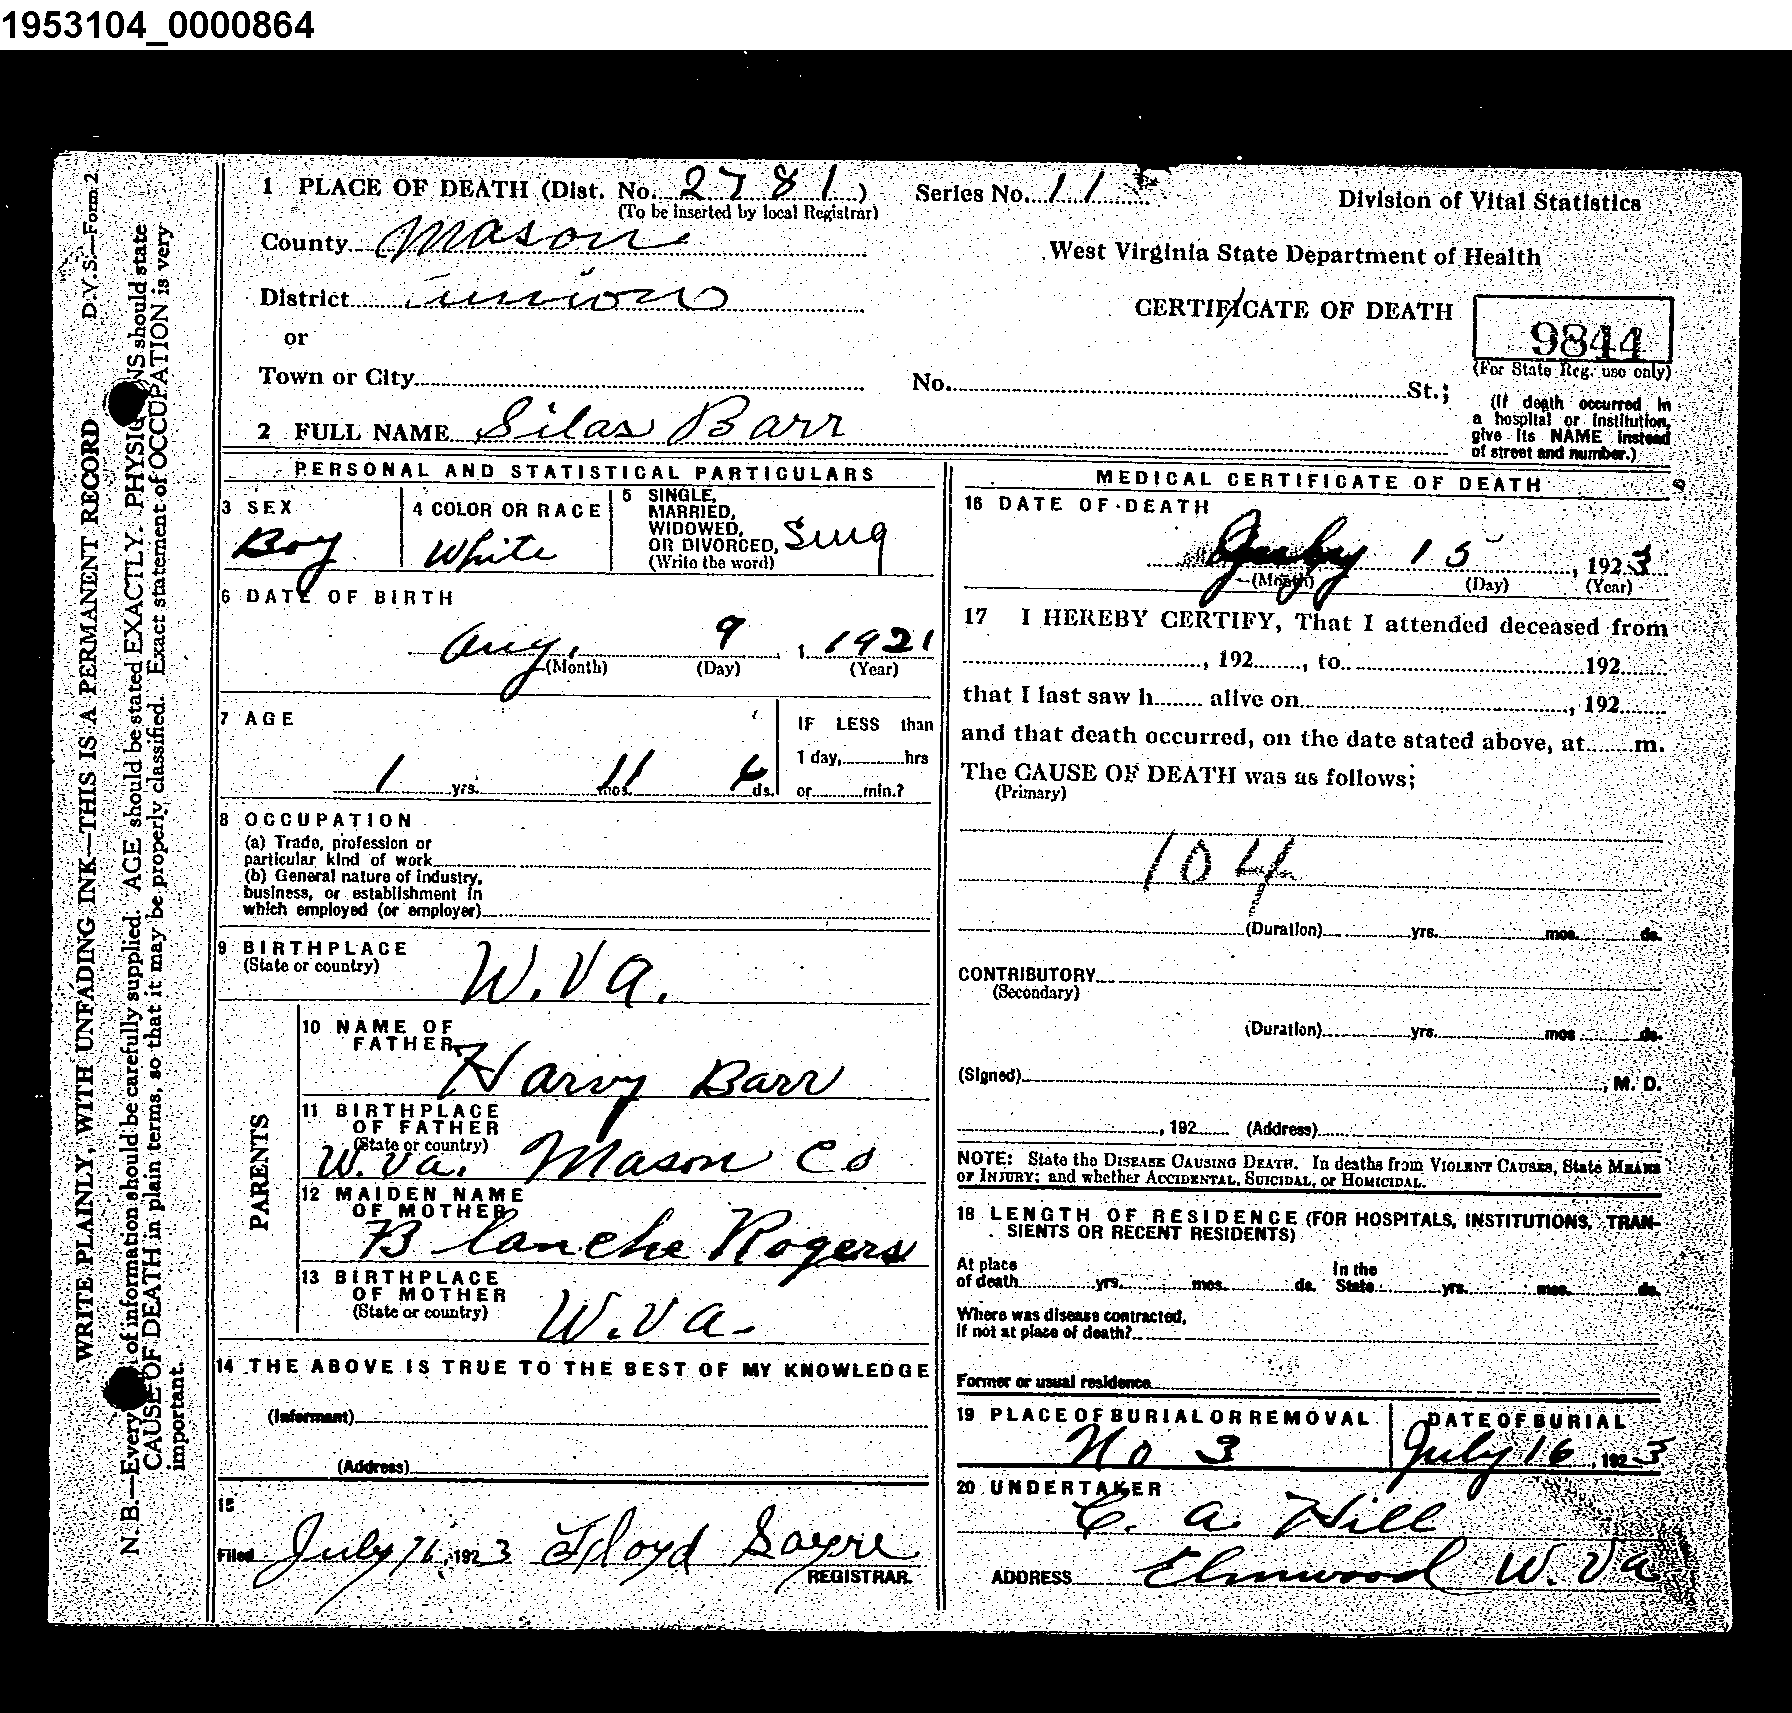 1953104_0000864
D.V.S.—Form 2.
WRITE PLAINLY, WITH UNFADING INK—THIS IS A PERMANENT RECORD
N. B.—Every of information should be carefully supplied. AGE should be stated EXACTLY. PHYSIC NS should state
CAUSE OF DEATH in plain terms, so that it may be properly classified. Exact statement of OCCUPATION is very
important.
1 PLACE OF DEATH (Dist. No. 2781) Series No. 11
(To be inserted by local Registrar)
Division of Vital Statistics
County Mason
West Virginia State Department of Health
District Union
CERTIFICATE OF DEATH
or
9844
(For State Reg. use only)
Town or City No. St.;
(If death occurred in
a hospital or institution,
give its NAME instead
of street and number.)
2 FULL NAME Silas Barr
PERSONAL AND STATISTICAL PARTICULARS
3 SEX
Boy
4 COLOR OR RACE
White
5 SINGLE,
MARRIED,
WIDOWED,
OR DIVORCED,
(Write the word)
Sing
6 DATE OF BIRTH
Aug. 9, 1921
(Month) (Day) (Year)
7 AGE
1 yrs. 11 mos. ds.
IF LESS than
1 day, hrs
or min.?
8 OCCUPATION
(a) Trade, profession or
particular kind of work
(b) General nature of industry,
business, or establishment in
which employed (or employer)
9 BIRTHPLACE
(State or country)
W. Va.
PARENTS
10 NAME OF
FATHER
Harvy Barr
11 BIRTHPLACE
OF FATHER
(State or country)
W. Va. Mason Co
12 MAIDEN NAME
OF MOTHER
Blanche Rogers
13 BIRTHPLACE
OF MOTHER
(State or country)
W. Va.
14 THE ABOVE IS TRUE TO THE BEST OF MY KNOWLEDGE
(Informant)
(Address)
15
Filed July 16, 1923 Floyd Sayre
REGISTRAR.
MEDICAL CERTIFICATE OF DEATH
16 DATE OF DEATH
July 15, 1923
(Month) (Day) (Year)
17 I HEREBY CERTIFY, That I attended deceased from
, 192 , to 192
that I last saw h alive on , 192
and that death occurred, on the date stated above, at m.
The CAUSE OF DEATH was as follows;
(Primary)
104
(Duration) yrs. mos. ds.
CONTRIBUTORY
(Secondary)
(Duration) yrs. mos ds.
(Signed) , M. D.
, 192 (Address)
NOTE: State the DISEASE CAUSING DEATH. In deaths from VIOLENT CAUSES, State MEANS
OF INJURY; and whether ACCIDENTAL, SUICIDAL, or HOMICIDAL.
18 LENGTH OF RESIDENCE (FOR HOSPITALS, INSTITUTIONS, TRAN-
SIENTS OR RECENT RESIDENTS)
At place
of death yrs. mos. ds.
In the
State yrs. mos. ds.
Where was disease contracted,
If not at place of death?
Former or usual residence
19 PLACE OF BURIAL OR REMOVAL
No 3
DATE OF BURIAL
July 16, 1923
20 UNDERTAKER
C. A. Hill
ADDRESS Elmwood W. Va